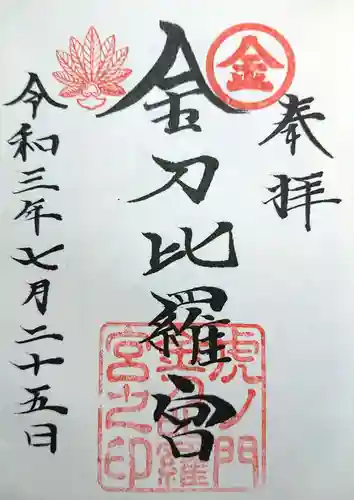 奉拝
金
金刀比羅宮
虎ノ門
金刀比羅
宮之印
令和三年七月二十五日